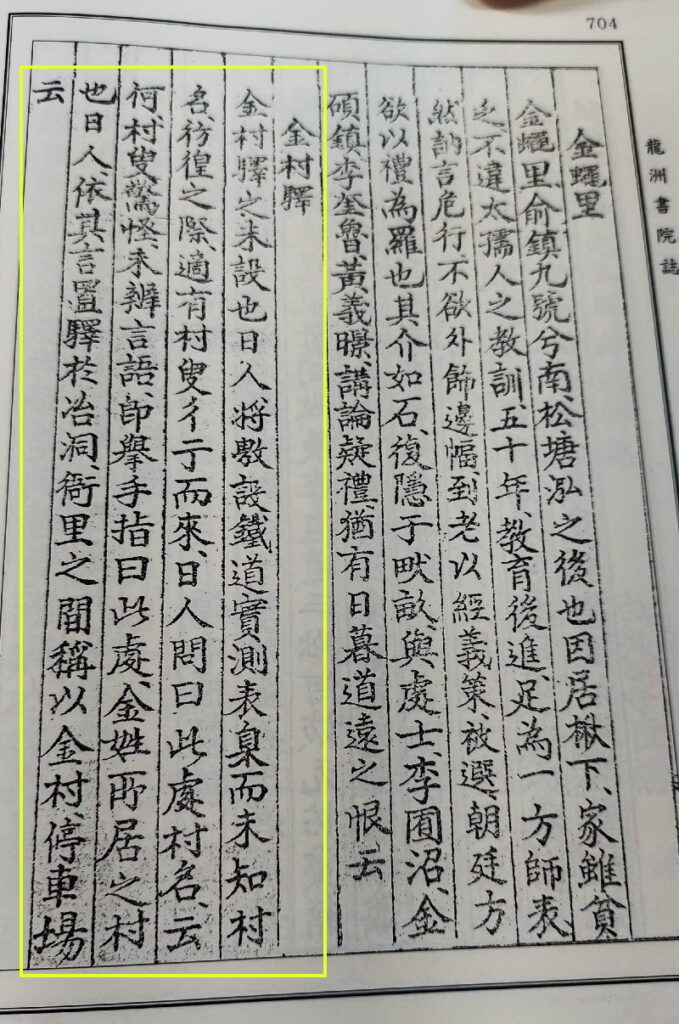 704
龍洲書院誌
金蠅里
金蠅里、俞鎮九號兮南、松塘泓之後也因居楸下、家雖貧
之不違太孺人之教訓、五十年、教育後進、足為一方師表
然訥言危行不欲外飾邊幅、到老以經義策、被選、朝廷方
欲以禮為羅也其介如石、復隱于畎畝、與處士、李囿沼、金
碩鎮、李奎魯、黃義㬢、講論疑禮、猶有日暮道遠之恨云
金村驛
金村驛之未設也日人、將敷設鐵道實測表臬而未知村
名、彷徨之際、適有村叟彳亍而來、日人問曰此處村名、云
何、村叟、驚怪、未辨言語、即擧手指曰此處、金姓所居之村
也日人、依其言置驛於冶洞、衙里之間稱以金村、停車場
云